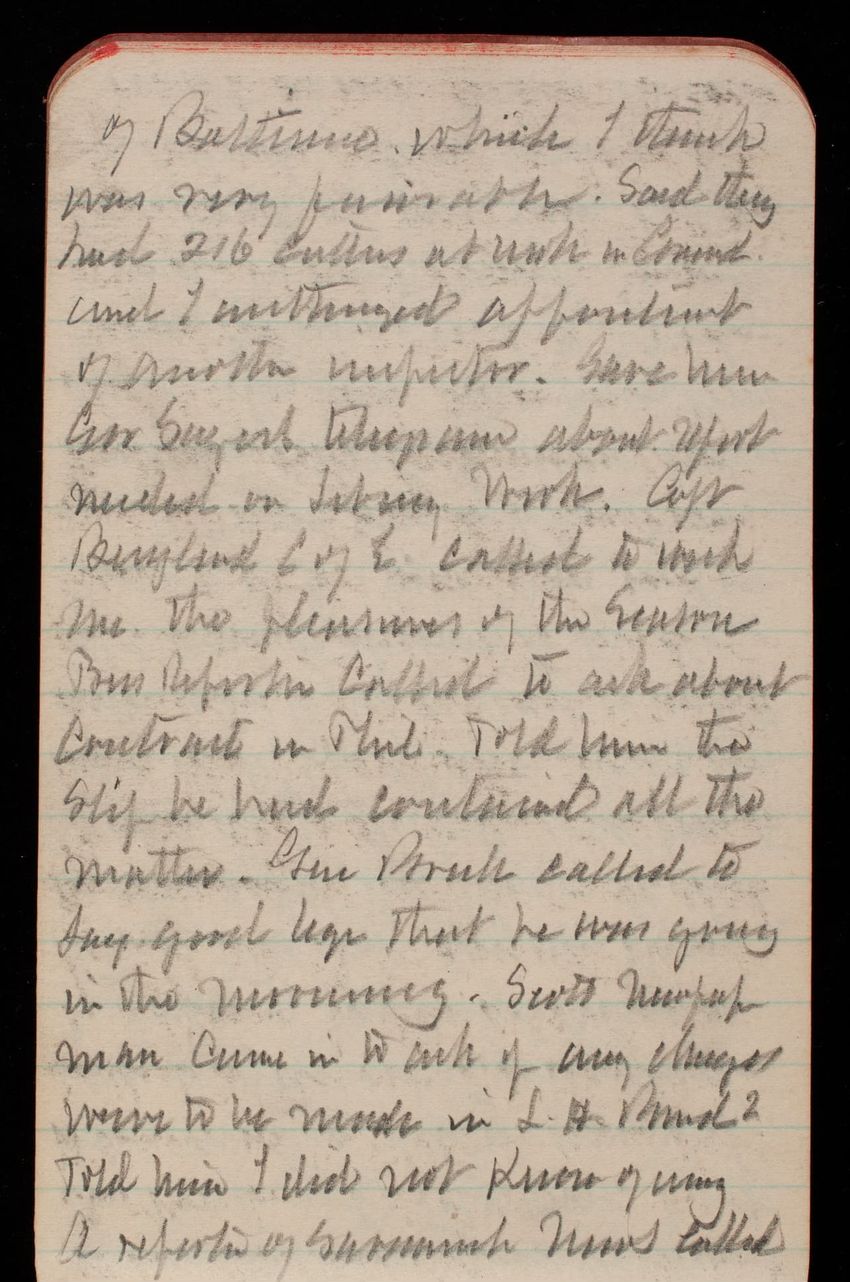 of Baltimore. which I think
was very favorable. Said they
had 216 cutters at work in
and I authorized appointment
of another inspector. Gave him
Gov telegram about report
needed on Library Work. Capt
Bergland C of E called to wish
me the pleasures of the Season
Press Reporter Called to ask about
Contract in Phil. Told him the
Slip he had contained all the
matter. Gen Breck called to
Say good bye that he was going
in the Morning. Scott Newspap
man Came in to ask if any changes
were to be made in L. H. Board?
Told him I did not Know of any
A reporter of Savannah News Called